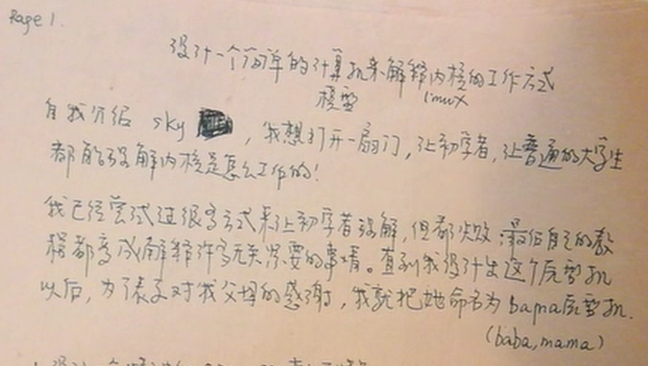 Page 1.
设计一个简单的计算机来解释内核的工作方式
模型 linux
自我介绍 sky , 我想打开一扇门, 让初学者, 让普通的大学生
都能理解内核是怎么工作的!
我已经尝试过很多方式来让初学者理解, 但都失败, 最后自己的教
程都变成解释许多无关紧要的事情。直到我设计出这个原型机
以后, 为了表示对我父母的感谢, 我就把她命名为 bama原型机.
(baba, mama)